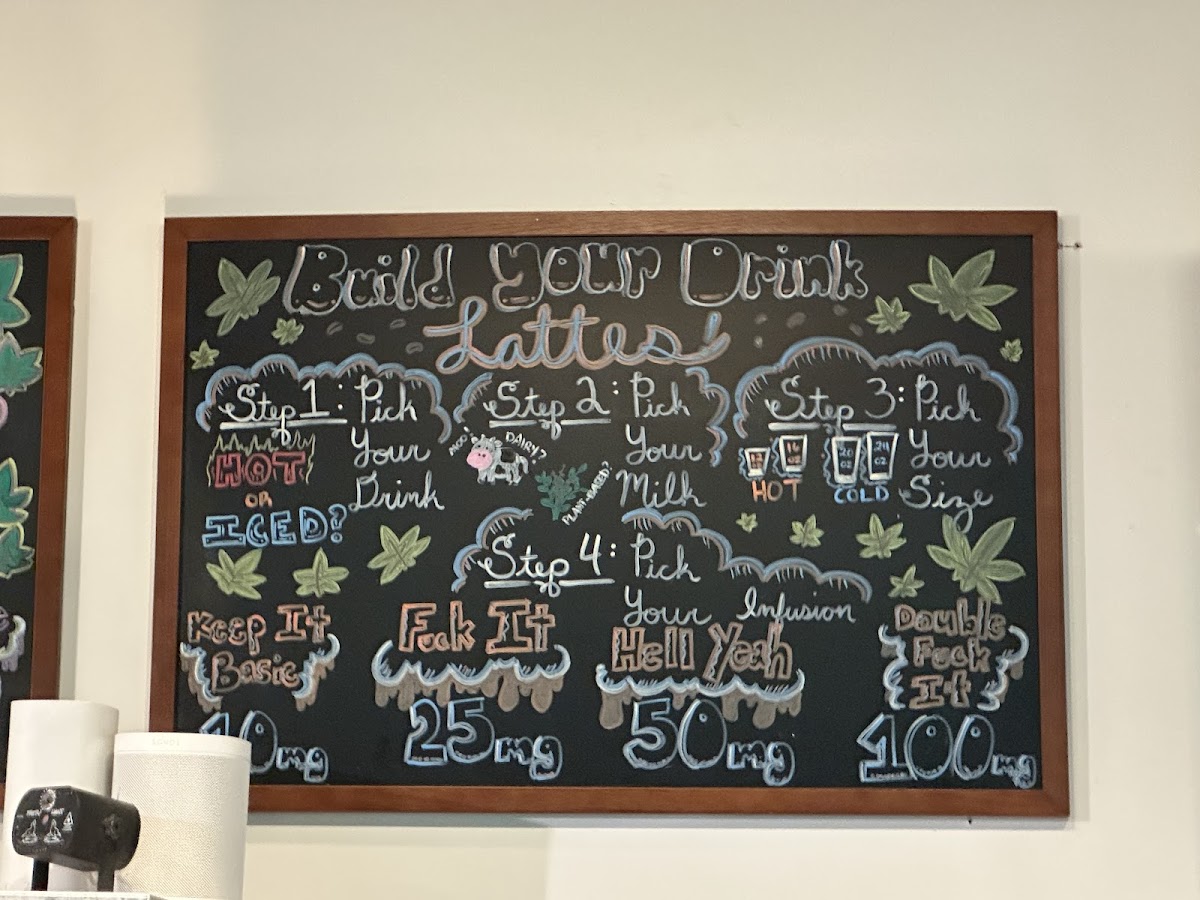 Build Your Drink
Lattes!
Step 1: Pick
Your
Drink
HOT
OR
ICED?
Step 2: Pick
Your
Milk
MOO!
DAIRY?
PLANT-BASED?
Step 3: Pick
Your
Size
12 oz
16 oz
HOT
20 oz
24 oz
COLD
Step 4: Pick
Your Infusion
Keep It
Basic
10mg
Fuck It
25mg
Hell Yeah
50mg
Double
Fuck
It
100mg
SONOS